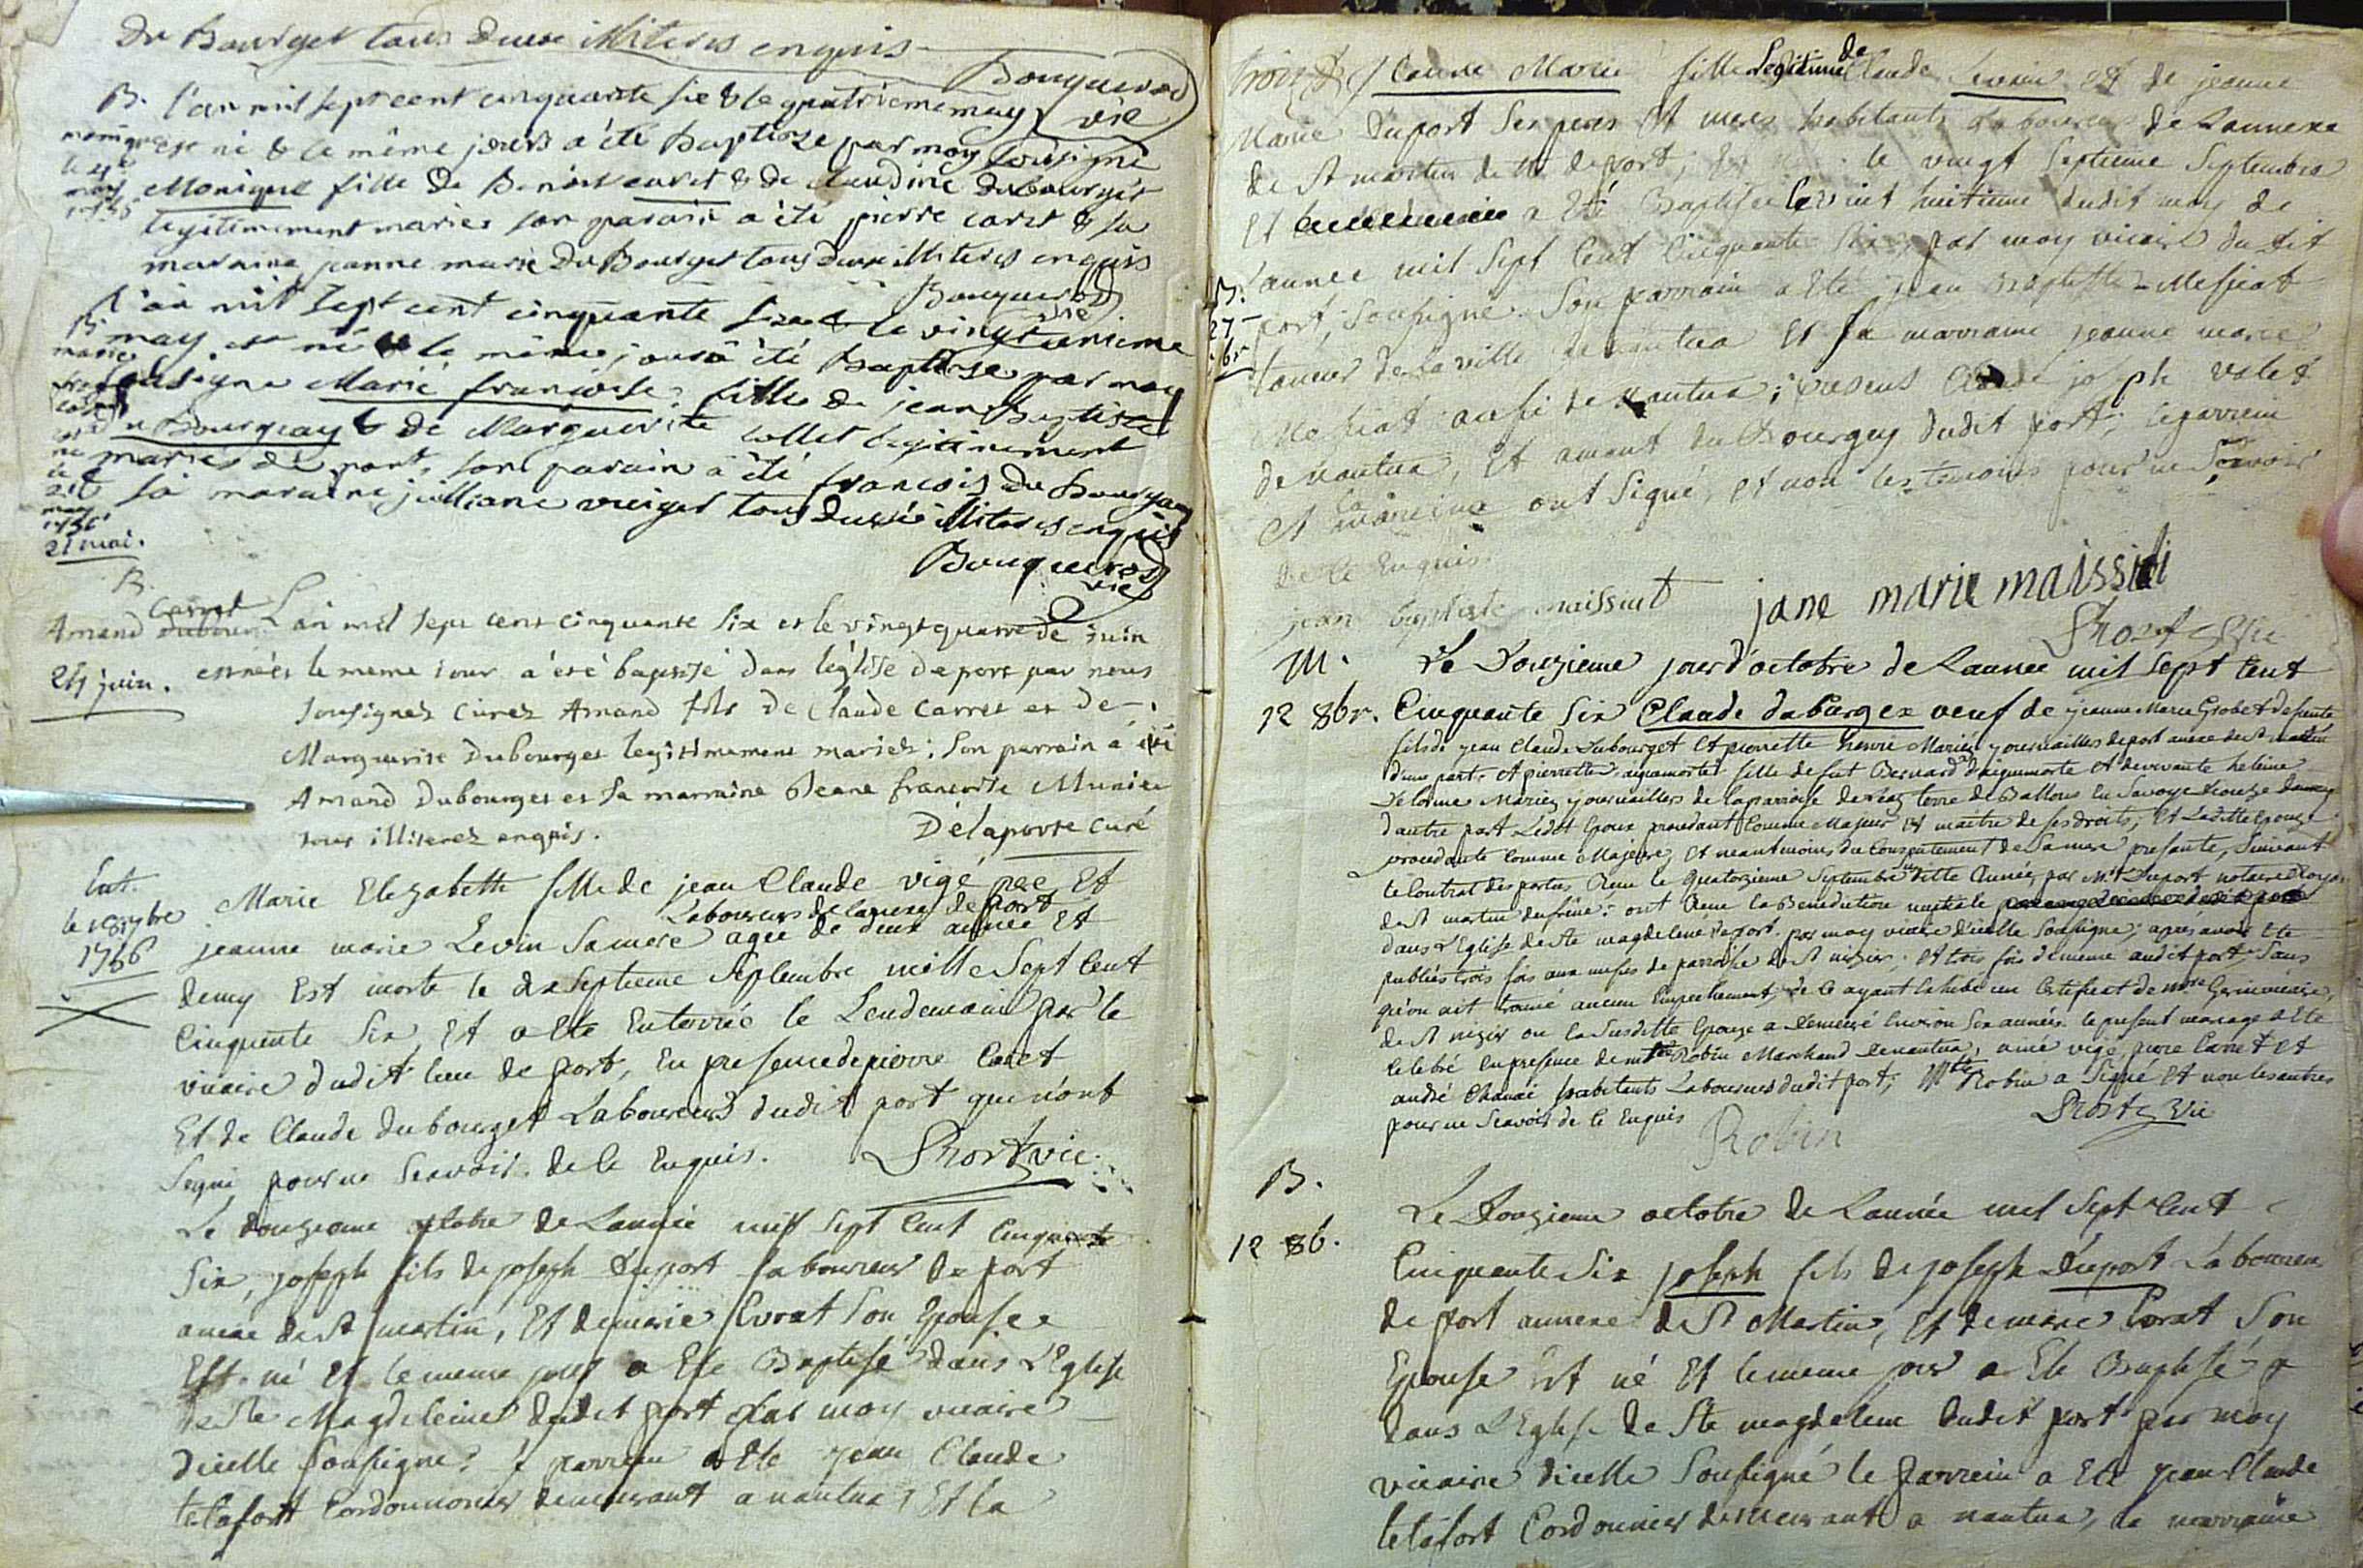 Du Bourget tous Deux illiteres enquis
Bouquerod
vic
B. l'an mil sept cent cinquante six & le quatrieme may
monique
le 4e
may
est né & le même jours a été Baptisze par moy sousigné
Monique fille De Benoist carret & de claudine dubourget
legitimement mariés son parain a été pierre caret & sa
maraine jeanne marie Du Bourget tous deux illiteres enquis
Bouquerod
vic
B. l'an mil sept cent cinquante size & le vingt unieme
may est né & le même jours a été Baptisse par moy
marie
sousigné Marie francoise fille de jean Baptiste
du Bourgeay & de Marguerite collet legitimement
mariés de port, son parain a été francois du bourgeay
le
21e
may
1756
21 mai.
sa maraine julliane vuiger tous deux illiteres enquis
Bouquerod
vic
B.
Amand Carret
24 juin.
L'an mil sept cent cinquante six et le vingt quatre de juin
est né et le meme jour a été baptisé dans l'église de port par nous
sousignez curez Amand fils de Claude Carret et de
Marguerite Dubourget legitimement mariez; son parrain a été
Amand Dubourget et sa marraine Jeane francoise Munier
tous illiterez enquis.
Délaporte curé
Ent.
le 18 7bre
1756
Marie Elizabeth fille de jean Claude vigé pere Et
Laboureurs de lanexe de Port
jeanne marie Levin sa mere agée de deux année Et
demy Est morte le dix septieme septembre mille sept Cent
Cinquente six, Et a Eté Enterrée le Lendemain par le
vicaire dudit lieu de port, En presence de pierre Caret
Et de Claude dubourget Laboureurs dudit port qui n'ont
signé pour ne scavoir de ce Enquis. Prost vic.
Le douzieme octobre de L'année mil sept Cent Cinquante
six, joseph fils de joseph Duport laboureur De port
anexe de St martin, Et de marie Evrat son Epouse
Est né Et le meme jour a Ete Baptisé dans L'Eglise
de Ste Magdeleine dudit port par moy vicaire
d'icelle sousigné; le parrein a Ete jean Claude
letafort Cordonnier demeurant a nantua, Et la
trois Claude Marie fille Legitime de Claude Levin et de jeanne
Marie Duport ses peres Et meres habitants Laboureurs de Lannexe
de St martin de port, le vingt septieme septembre
Et a Eté Baptisée le vint huitieme dudit moy de
l'année mil sept Cent Cinquante six, par moy vicaire du dit
B.
27
7br
port, sousigné. Son parrain a Eté jean baptiste Messiat
taneur de la ville de nantua Et sa marraine jeanne marie
Messiat aussi de Nantua; presens Claude joseph valet
de nantua, Et amant du Bourgey dudit port; le parrein
Et la mareine ont signé, Et non les temoins pour ne sçavoir
de ce Enquis
jean baptiste maissiat jane marie maissiat
Prost vic
M.
12 8br.
Le Douzieme jour d'octobre de Lannée mil sept Cent
Cinquante six Claude duburget veuf de jeanne Marie Grobet defunte
fils de jean Claude Dubourget Et pierrette henrie Mariez journailliers de port anexe de St martin
d'une part. Et pierrette aiguamorte fille de feut Bernard d'aiguemorte Et de vivante heleine
Delorme Mariez journailliers de la parroisse de terre de Ballons En Savoye
d'autre part Ledit Epoux procedant Comme Majeur Et maitre de ses droits; Et Laditte Epouze
procedante Comme Majeure, Et neantmoins du Consentement de sa mere presante, suivant
le Contrat des parties Reçu le Quatorzieme septembre ditte Année, par Mt Duport notaire Royal
de St martin du frene: ont Reçu la Benediction nuptiale
dans L'Eglise de Ste magdeleine de port. par moy vicaire d'icelle sousigné; apres avoir Ete
publiés trois fois aux messes de parroisse de St nizier, Et trois fois de meme audit port sans
qu'on ait trouvé aucun Empechement, de ce ayant Exhibé un Certificat de Mre Germ vicaire,
de St nizier ou la susditte Epouze a demeuré Environ six années. le present mariage a Eté
Celebré En presence de Robin Marchand de nantua, aimé vigé, piere Carret Et
andré Chanai habitants Laboureurs dudit port; Robin a signé Et non les autres
pour ne scavoir de ce Enquis Prost vic
Robin
B.
12 8b.
Le Douzieme octobre de L'année mil sept Cent
Cinquante six joseph fils de joseph Duport Laboureur
de port annexe de St Martin, Et de marie Evrat son
Epouse Est né Et le meme jour a Eté Baptisé
dans L'Eglise de Ste magdeleine dudit port par moy
vicaire d'icelle sousigné le parrein a Eté jean Claude
letafort Cordonnier demeurant a nantua, la marraine